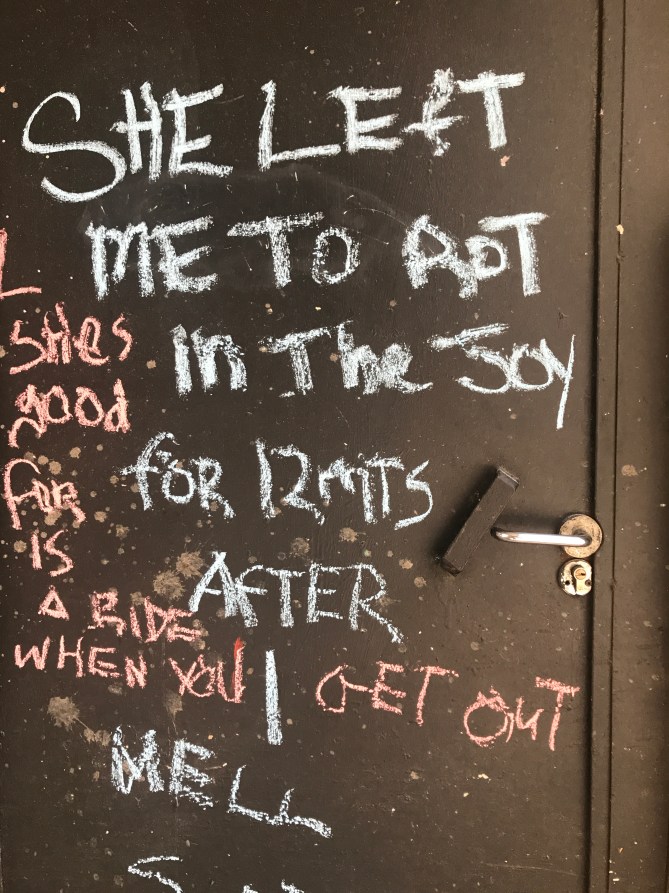 SHE LEfT
ME TO ROT
in The JOY
for 12 MTS
AFTER
I
MELL
L
SHes
good
for
IS
A RIDE
WHEN YOU GET OUT